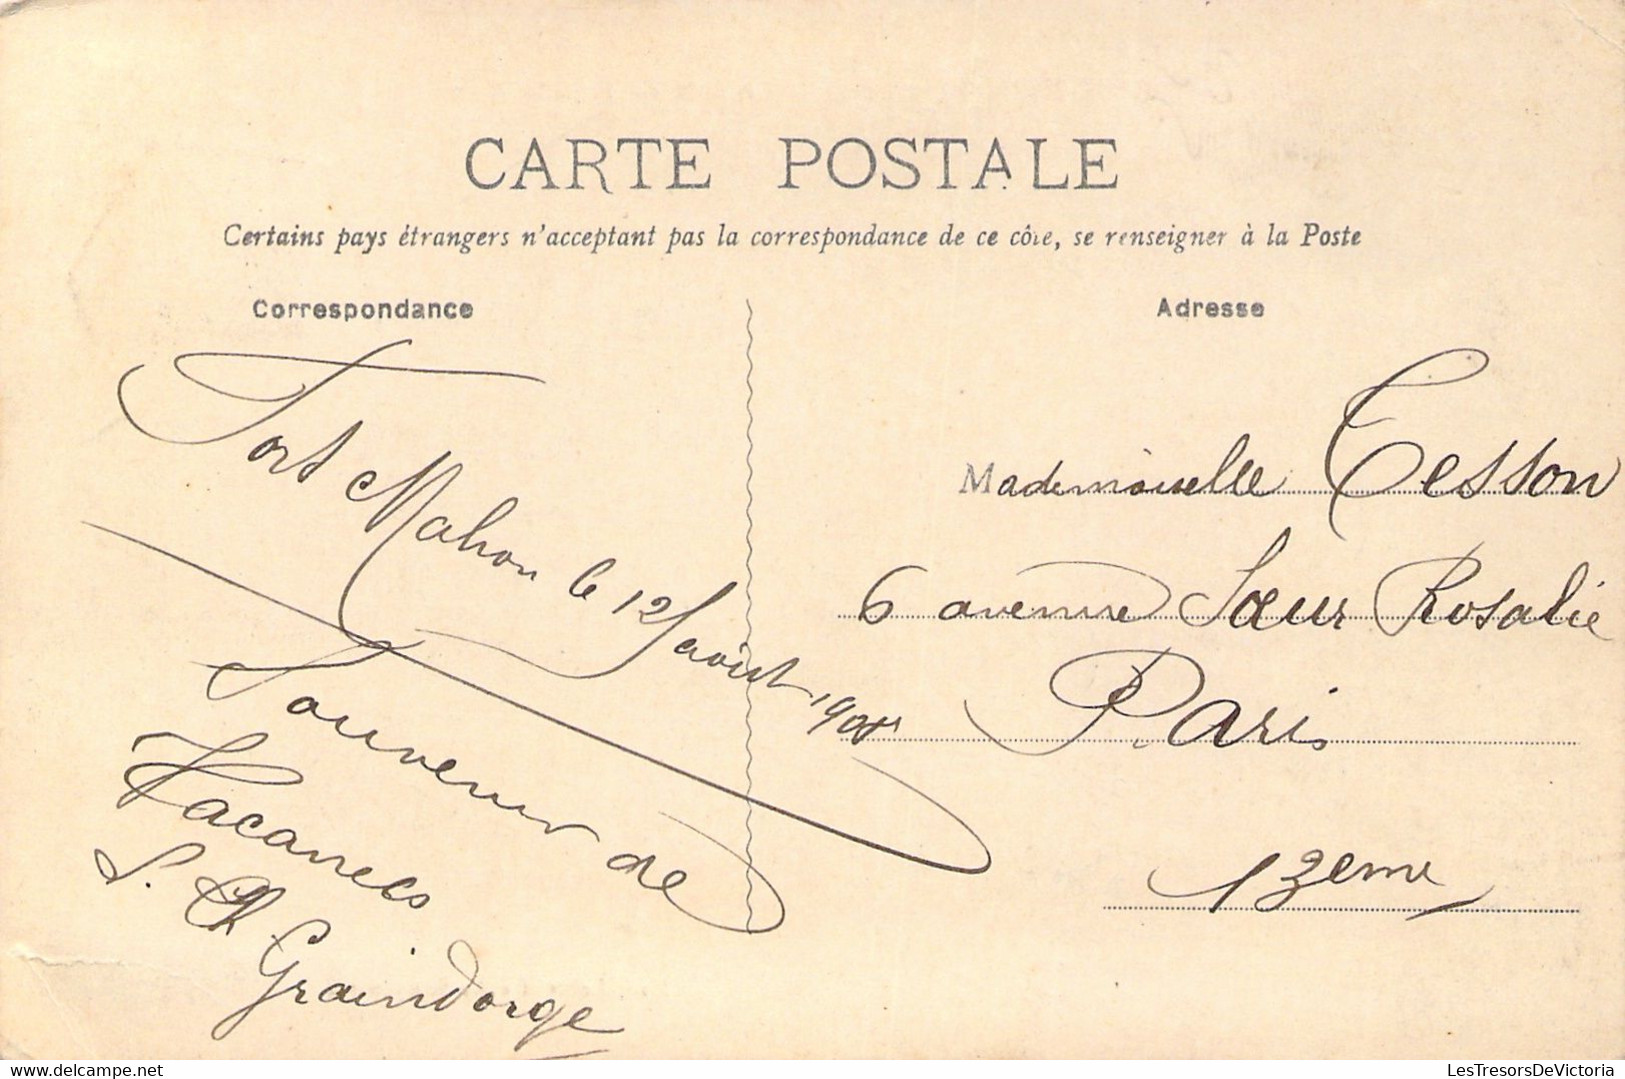 CARTE POSTALE
Certains pays étrangers n'acceptant pas la correspondance de ce côté, se renseigner à la Poste
Correspondance
Adresse
Fort Mahon le 12 août
Souvenir de
Vacances
Graindorge
Mademoiselle Tesson
6 avenue Sœur Rosalie
Paris
13eme
Delcampe.net
LesTresorsDeVictoria